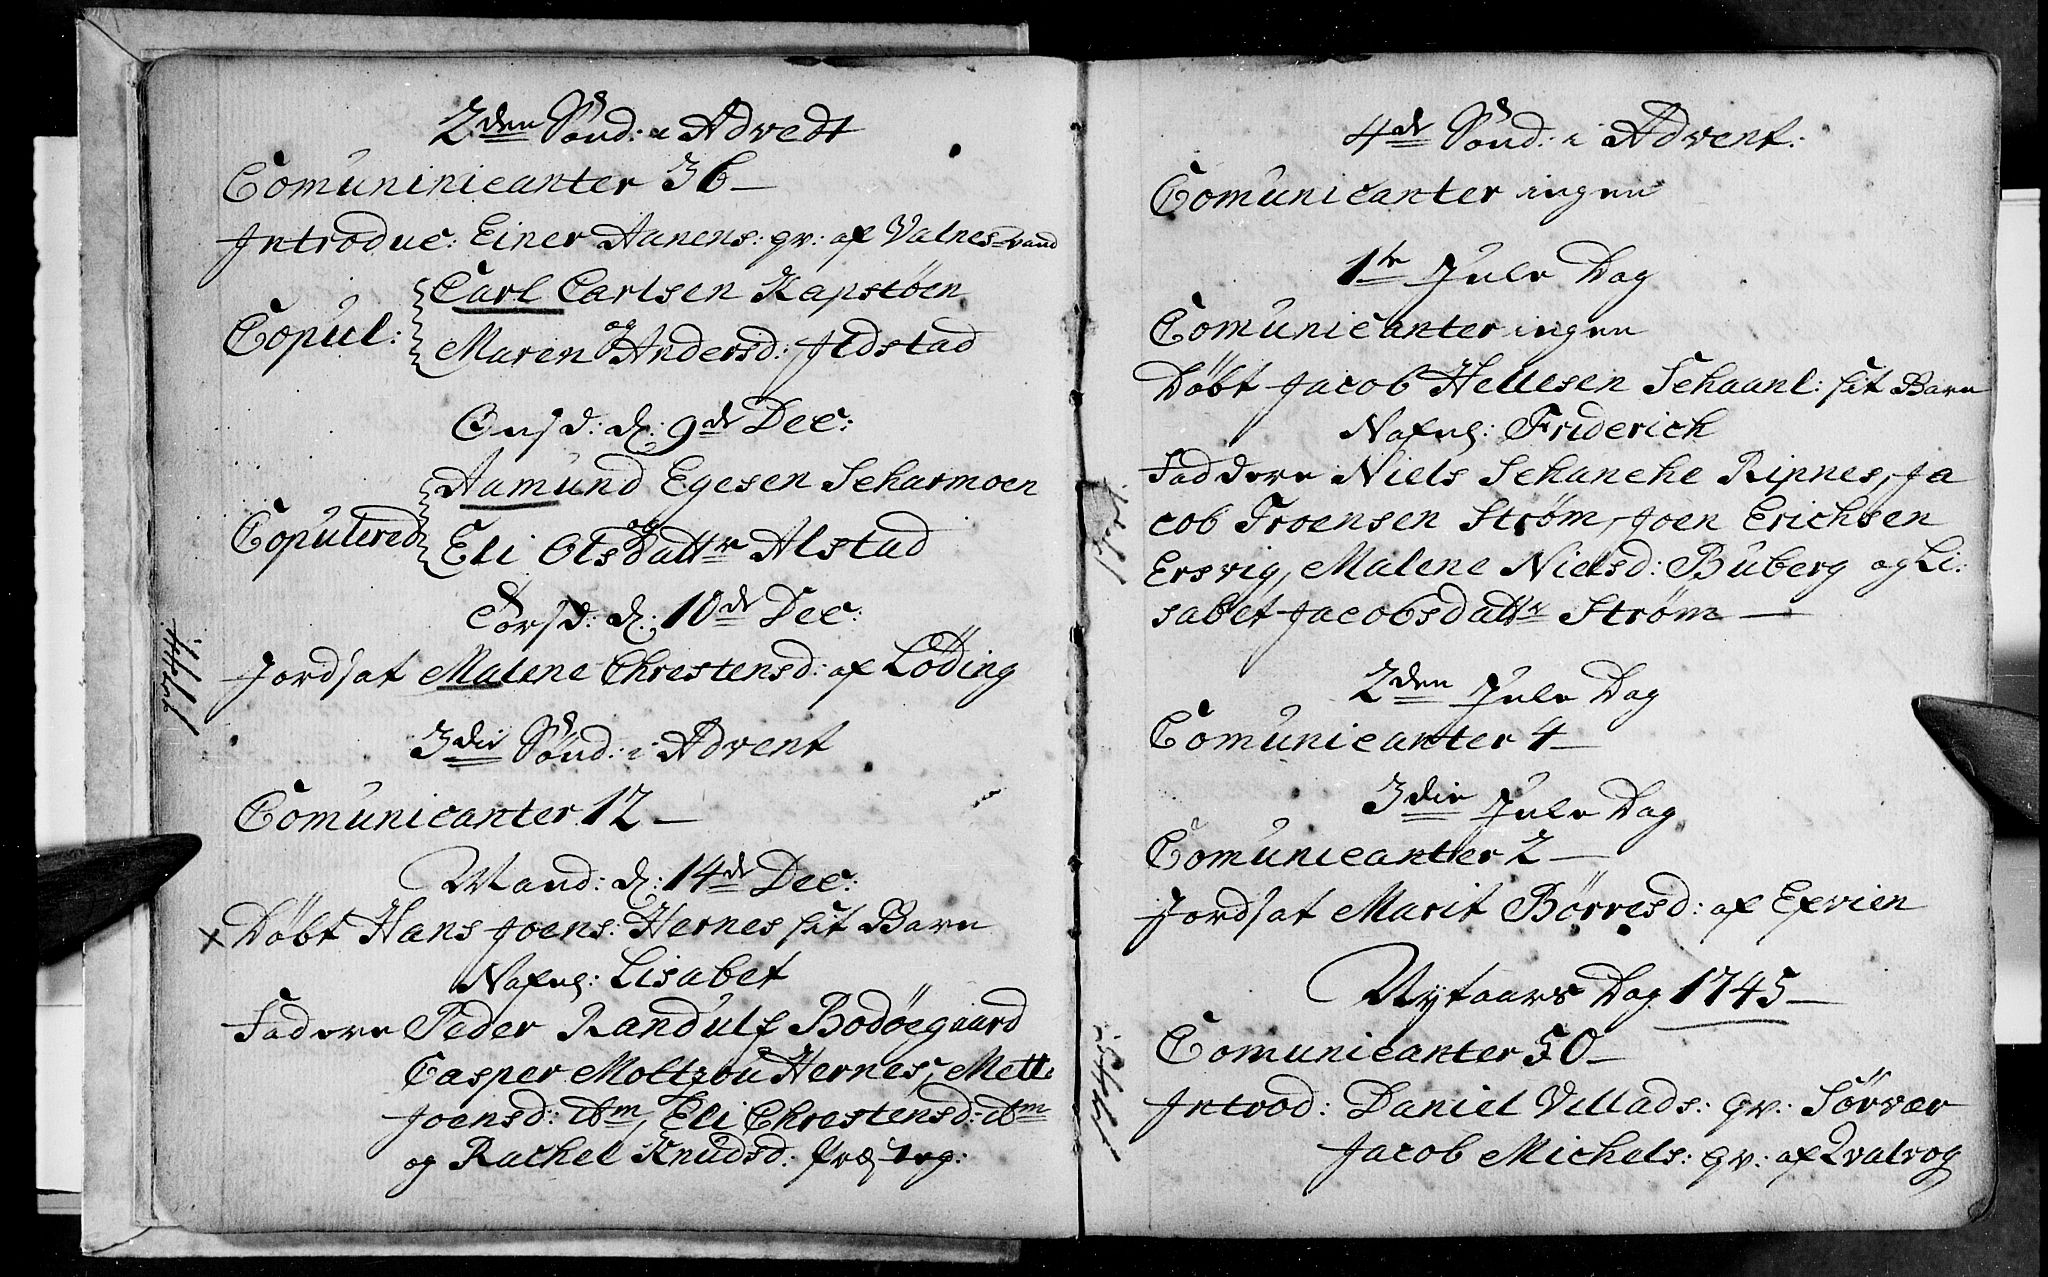 2den Sønd: i Advedt
Comuninicanter 36
Introduc: Einer Aanens: qv: af Valnesvand
Carl Carlsen Kapstøen
Copul: og
Maren Andersd: Ildstad
Onsd: d: 9de Dec:
Aamund Egesen Scharmoen
Copulered og
Eli Olsdattr Alstad
Torsd: d: 10de Dec:
Jordsat Malene Chrestensd: af Løding
1744.
3die Sønd: i Advent
Comunicanter 12
Mand: d: 14de Dec:
x Døbt Hans Joens: Hernes sit Barn
Nafnl: Lisabet
Fadere Peder Randulf Bodøegaard
Casper Moltzou Hernes, Mette
Joensd: ibm, Eli Chrestensd: ibm
og Rachel Knudsd:
4de Sønd: i Advent:
Comunicanter ingen
1te Jule Dag
Comunicanter ingen
Døbt Jacob Hellesen Schaanl: sit Barn
Nafnl: Friderich
Faddere Niels Schancke Ripnes, Ja
cob Troensen Strøm, Joen Erichsen
Ersvig, Malene Nielsd: Buberg og Li:
sabet Jacobsdattr Strøm
2den Jule Dag
Comunicanter 4
3die Jule Dag
Comunicanter 2
Jordsat Marit Børresd: af Evien
Nytaars Dag 1745
1745.
Comunicanter 50
Introd: Daniel Villads: qv: Sørvær
Jacob Michels: qv: af Qvalvog